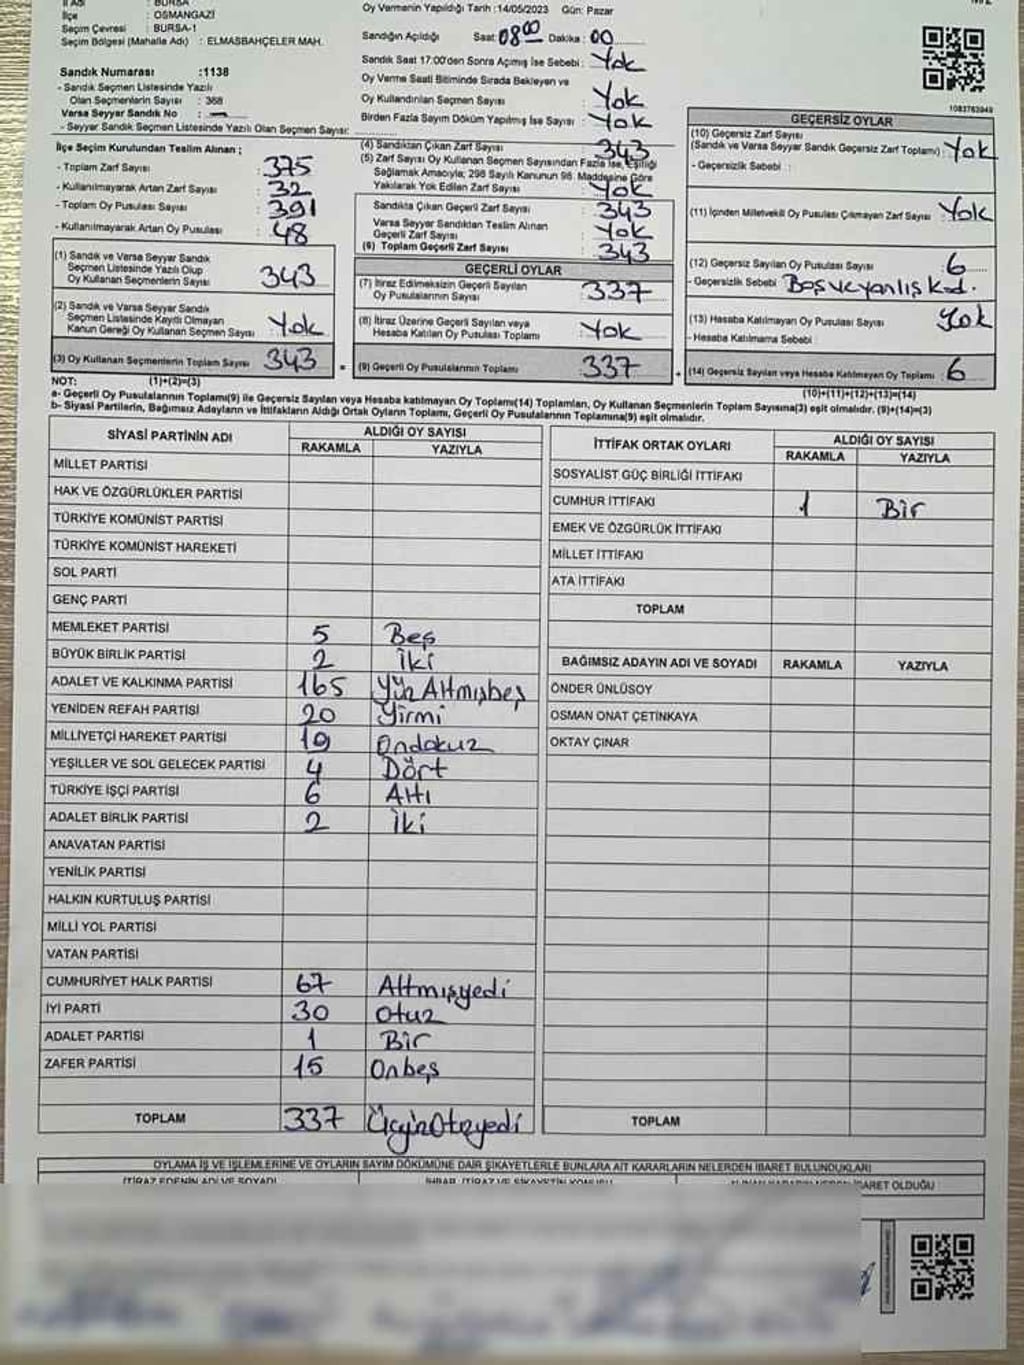 İl Adı : BURSA
İlçe : OSMANGAZİ
Seçim Çevresi : BURSA-1
Seçim Bölgesi (Mahalle Adı) : ELMASBAHÇELER MAH.
Sandık Numarası :1138
- Sandık Seçmen Listesinde Yazılı
Olan Seçmenlerin Sayısı : 368
Varsa Seyyar Sandık No : -
- Seyyar Sandık Seçmen Listesinde Yazılı Olan Seçmen Sayısı:
Oy Vermenin Yapıldığı Tarih :14/05/2023 Gün: Pazar
Sandığın Açıldığı Saat: 08 00 Dakika: 00
Sandık Saat 17:00'den Sonra Açılmış İse Sebebi : Yok
Oy Verme Saati Bitiminde Sırada Bekleyen ve
Oy Kullandırılan Seçmen Sayısı : Yok
Birden Fazla Sayım Döküm Yapılmış İse Sayısı : Yok
1083763949
İlçe Seçim Kurulundan Teslim Alınan ;
- Toplam Zarf Sayısı : 375
- Kullanılmayarak Artan Zarf Sayısı : 32
- Toplam Oy Pusulası Sayısı : 391
- Kullanılmayarak Artan Oy Pusulası : 48
(1) Sandık ve Varsa Seyyar Sandık
Seçmen Listesinde Yazılı Olup
Oy Kullanan Seçmenlerin Sayısı : 343
(2) Sandık ve Varsa Seyyar Sandık
Seçmen Listesinde Kayıtlı Olmayan
Kanun Gereği Oy Kullanan Seçmen Sayısı : Yok
(3) Oy Kullanan Seçmenlerin Toplam Sayısı : 343
(4) Sandıktan Çıkan Zarf Sayısı : 343
(5) Zarf Sayısı Oy Kullanan Seçmen Sayısından Fazla İse, Eşitliği
Sağlamak Amacıyla; 298 Sayılı Kanunun 98. Maddesine Göre
Yakılarak Yok Edilen Zarf Sayısı : Yok
Sandıkta Çıkan Geçerli Zarf Sayısı : 343
Varsa Seyyar Sandıktan Teslim Alınan
Geçerli Zarf Sayısı : Yok
(6) Toplam Geçerli Zarf Sayısı : 343
GEÇERLİ OYLAR
(7) İtiraz Edilmeksizin Geçerli Sayılan
Oy Pusulalarının Sayısı : 337
(8) İtiraz Üzerine Geçerli Sayılan veya
Hesaba Katılan Oy Pusulaları Toplamı : Yok
= (9) Geçerli Oy Pusulalarının Toplamı : 337
GEÇERSİZ OYLAR
(10) Geçersiz Zarf Sayısı
(Sandık ve Varsa Seyyar Sandık Geçersiz Zarf Toplamı) : Yok
- Geçersizlik Sebebi :
(11) İçinden Milletvekili Oy Pusulası Çıkmayan Zarf Sayısı : Yok
(12) Geçersiz Sayılan Oy Pusulası Sayısı : 6
- Geçersizlik Sebebi : Boş ve yanlış kod.
(13) Hesaba Katılmayan Oy Pusulası Sayısı : Yok
- Hesaba Katılmama Sebebi :
+ (14) Geçersiz Sayılan veya Hesaba Katılmayan Oy Toplamı : 6
NOT: (1)+(2)=(3) (10)+(11)+(12)+(13)=(14)
a- Geçerli Oy Pusulalarının Toplamı(9) ile Geçersiz Sayılan veya Hesaba katılmayan Oy Toplamı(14) Toplamları, Oy Kullanan Seçmenlerin Toplam Sayısına(3) eşit olmalıdır. (9)+(14)=(3)
b- Siyasi Partilerin, Bağımsız Adayların ve İttifakların Aldığı Ortak Oyların Toplamı, Geçerli Oy Pusulalarının Toplamına(9) eşit olmalıdır.
SİYASİ PARTİNİN ADI ALDIĞI OY SAYISI
RAKAMLA YAZIYLA
MİLLET PARTİSİ
HAK VE ÖZGÜRLÜKLER PARTİSİ
TÜRKİYE KOMÜNİST PARTİSİ
TÜRKİYE KOMÜNİST HAREKETİ
SOL PARTİ
GENÇ PARTİ
MEMLEKET PARTİSİ 5 Beş
BÜYÜK BİRLİK PARTİSİ 2 İki
ADALET VE KALKINMA PARTİSİ 165 Yüz Altmışbeş
YENİDEN REFAH PARTİSİ 20 Yirmi
MİLLİYETÇİ HAREKET PARTİSİ 19 Ondokuz
YEŞİLLER VE SOL GELECEK PARTİSİ 4 Dört
TÜRKİYE İŞÇİ PARTİSİ 6 Altı
ADALET BİRLİK PARTİSİ 2 İki
ANAVATAN PARTİSİ
YENİLİK PARTİSİ
HALKIN KURTULUŞ PARTİSİ
MİLLİ YOL PARTİSİ
VATAN PARTİSİ
CUMHURİYET HALK PARTİSİ 67 Altmışyedi
İYİ PARTİ 30 Otuz
ADALET PARTİSİ 1 Bir
ZAFER PARTİSİ 15 Onbeş
TOPLAM 337 Üçyüzotuzyedi
İTTİFAK ORTAK OYLARI ALDIĞI OY SAYISI
RAKAMLA YAZIYLA
SOSYALİST GÜÇ BİRLİĞİ İTTİFAKI
CUMHUR İTTİFAKI 1 Bir
EMEK VE ÖZGÜRLÜK İTTİFAKI
MİLLET İTTİFAKI
ATA İTTİFAKI
TOPLAM
BAĞIMSIZ ADAYIN ADI VE SOYADI RAKAMLA YAZIYLA
ÖNDER ÜNLÜSOY
OSMAN ONAT ÇETİNKAYA
OKTAY ÇINAR
TOPLAM
OYLAMA İŞ VE İŞLEMLERİNE VE OYLARIN SAYIM DÖKÜMÜNE DAİR ŞİKAYETLERLE BUNLARA AİT KARARLARIN NELERDEN İBARET BULUNDUKLARI
İTİRAZ EDENİN ADI VE SOYADI
İHBAR, İTİRAZ VE ŞİKAYETİN KONUSU
İBARET OLDUĞU